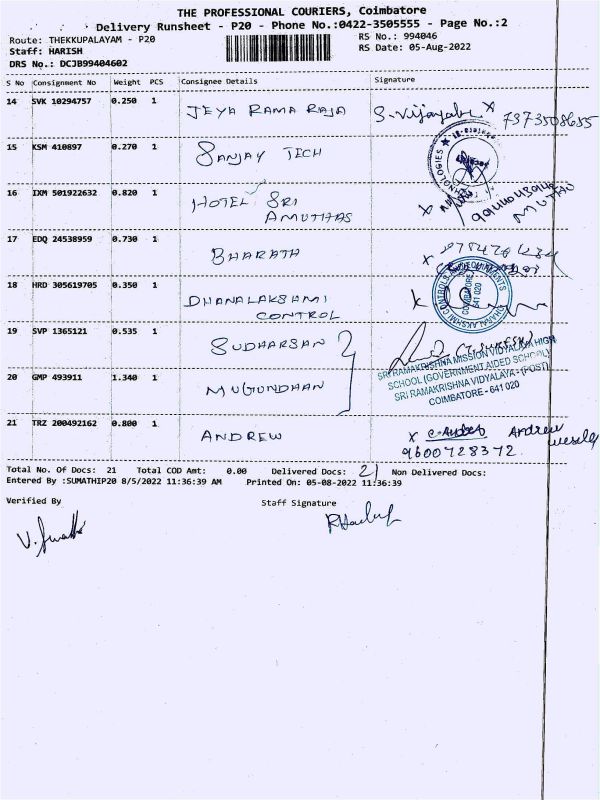 THE PROFESSIONAL COURIERS, Coimbatore
Delivery Runsheet - P20 - Phone No.:0422-3505555 - Page No.:2
Route: THEKKUPALAYAM - P20
RS No.: 994046
Staff: HARISH
RS Date: 05-Aug-2022
DRS No.: DCJB99404602
S No Consignment No Weight PCS Consignee Details Signature
14 SVK 10294757 0.250 1 JEYA RAMA RAJA S. Vijayabe x 7373508655
15 KSM 410897 0.270 1 SANJAY TECH
16 IXM 501922632 0.820 1 HOTEL SRI
AMUTHAS
MUTHU
17 EDQ 24538959 0.730 1 BHARATH
18 HRD 305619705 0.350 1 DHANALAKSHMI
CONTROL
DHANALAKSHMI CONTROLS
COIMBATORE
641 020
19 SVP 1365121 0.535 1 SUDHARSAN
20 GMP 493911 1.340 1 MUGUNDHAN
SRI RAMAKRISHNA MISSION VIDYALAYA HIGH
SCHOOL (GOVERNMENT AIDED SCHOOL)
SRI RAMAKRISHNA VIDYALAYA - (POST)
COIMBATORE - 641 020
21 TRZ 200492162 0.800 1 ANDREW x Andrew
9600728372
Total No. Of Docs: 21 Total COD Amt: 0.00 Delivered Docs: 21 Non Delivered Docs:
Entered By :SUMATHIP20 8/5/2022 11:36:39 AM Printed On: 05-08-2022 11:36:39
Verified By Staff Signature